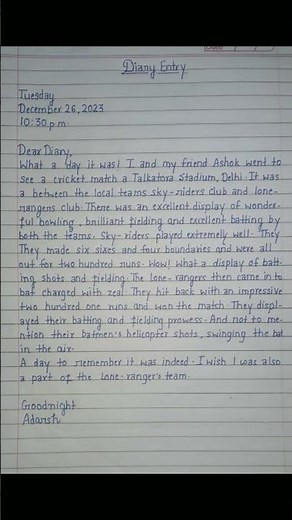 Diary Entry
Tuesday
December 26, 2023
10:30 p.m
Dear Diary,
What a day it was! I and my friend Ashok went to
see a cricket match a Talkatora Stadium, Delhi. It was
a between the local teams sky-riders club and lone-
rangers club. There was an excellent display of wonder-
ful bowling, brilliant fielding and excellent batting by
both the teams. Sky-riders played extremely well. They
They made six sixes and four boundaries and were all
out for two hundred runs. Wow! What a display of batt-
ing shots and fielding. The lone-rangers then came in to
bat charged with zeal. They hit back with an impressive
two hundred one runs and won the match. They displ-
ayed their batting and fielding prowess. And not to me-
ntion their batmen's helicopter shots, swinging the bat
in the air.
A day to remember it was indeed. I wish I was also
a part of the lone-ranger's team.
Goodnight
Adarsh